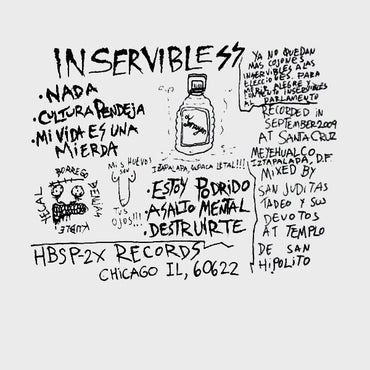 INSERVIBLESS
· NADA
· CULTURA PENDEJA
· MI VIDA ES UNA
MIERDA
YA NO QUEDAN
MAS COJONES
INSERVIBLES A LAS
ELECCIONES. PARA
ALEGRE Y
INSERVIBLES
AL PARLAMENTO
RECORDED IN
SEPTEMBER 2009
AT SANTA CRUZ
MEYEHUALCO,
IZTAPALAPA, D.F
MIXED BY
SAN JUDITAS
TADEO Y SUS
DEVOTOS
AT TEMPLO
DE SAN
HIPOLITO
MIS HUEVOS
Y SON
TUS
OJOS!!!
IZTAPALAPA, OAXACA LETAL!!!
BORREGO
· ESTOY PODRIDO
· ASALTO MENTAL
· DESTRUIRTE
HBSP-2X RECORDS
CHICAGO IL, 60622